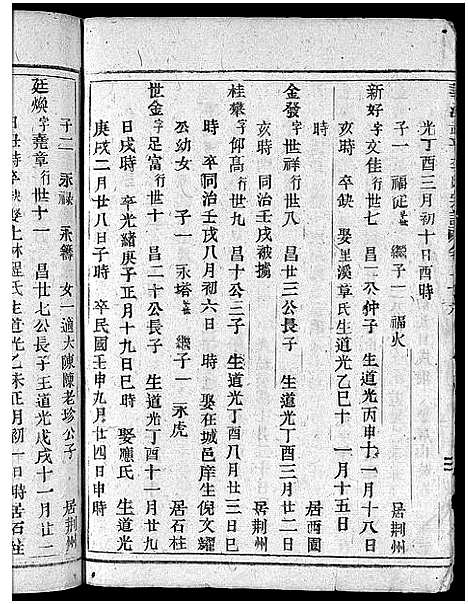 光丁酉三月初十日酉時
子一 福 繼子一 福火 居荆州
新好字文佳行世七 昌一公仲子 生道光丙申十一月十八日
時 卒缺 娶里溪章氏生道光乙巳十一月十五日
時 居西園
金發字世祥行世八 昌廿三公長子 生道光丁酉三月二日
亥時 卒同治壬戌被擄 居荆州
桂攀字仰高行世九 昌十公三子 生道光丁酉八月廿三日巳
時 卒同治壬戌八月初六日 娶在城邑庠生倪文耀
公幼女 子一 永塔 繼子一 永虎 居石柱
世金字足富行世十 昌二十公長子 生道光丁酉十一月廿九
日戌時 卒光緒庚子正月十九日巳時 娶應氏 生道光
庚戌二月廿八日子時 卒民國壬申九月廿四日申時
子二 永祿 永籌 女一適大陳陳老珍公子 居荆州
廷煥字嘉章行世十一 昌廿七公長子 生道光戊戌十一月廿二
氏生道光乙未正月初一日時居石柱